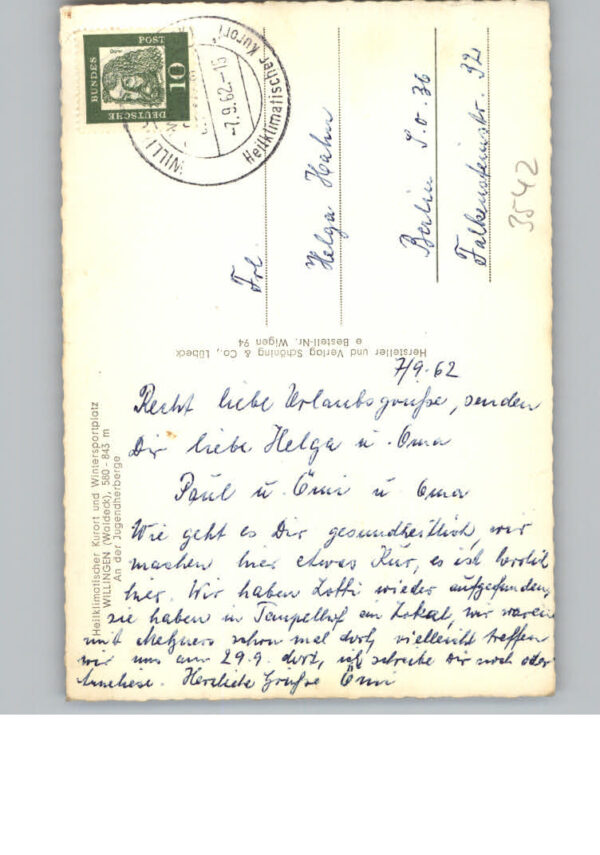 DEUTSCHE
BUNDES
POST
10
WILLI
-7.9.62.-15
Heilklimatischer Kurort
Frl.
Helga Hahn
Berlin S.O. 36
Falkensteinstr. 32
3542
Hersteller und Verlag Schöning & Co., Lübeck
e Bestell-Nr. Wigen 94
Heilklimatischer Kurort und Wintersportplatz
WILLINGEN (Waldeck), 580 - 843 m
An der Jugendherberge
7/9.62
Recht liebe Urlaubsgrüße, senden
Dir liebe Helga u. Oma
Paul u. Omi u. Oma
Wie geht es Dir gesundheitlich, wir
machen hier etwas Kur, es ist herrlich
hier. Wir haben Lotti wieder aufgefunden,
sie haben in Tempelhof ein Lokal, wir waren
mit Metzners schon mal dort, vielleicht treffen
wir uns am 29.9. dort, ich schreibe Dir noch oder
Anneliese. Herzliche Grüße Omi